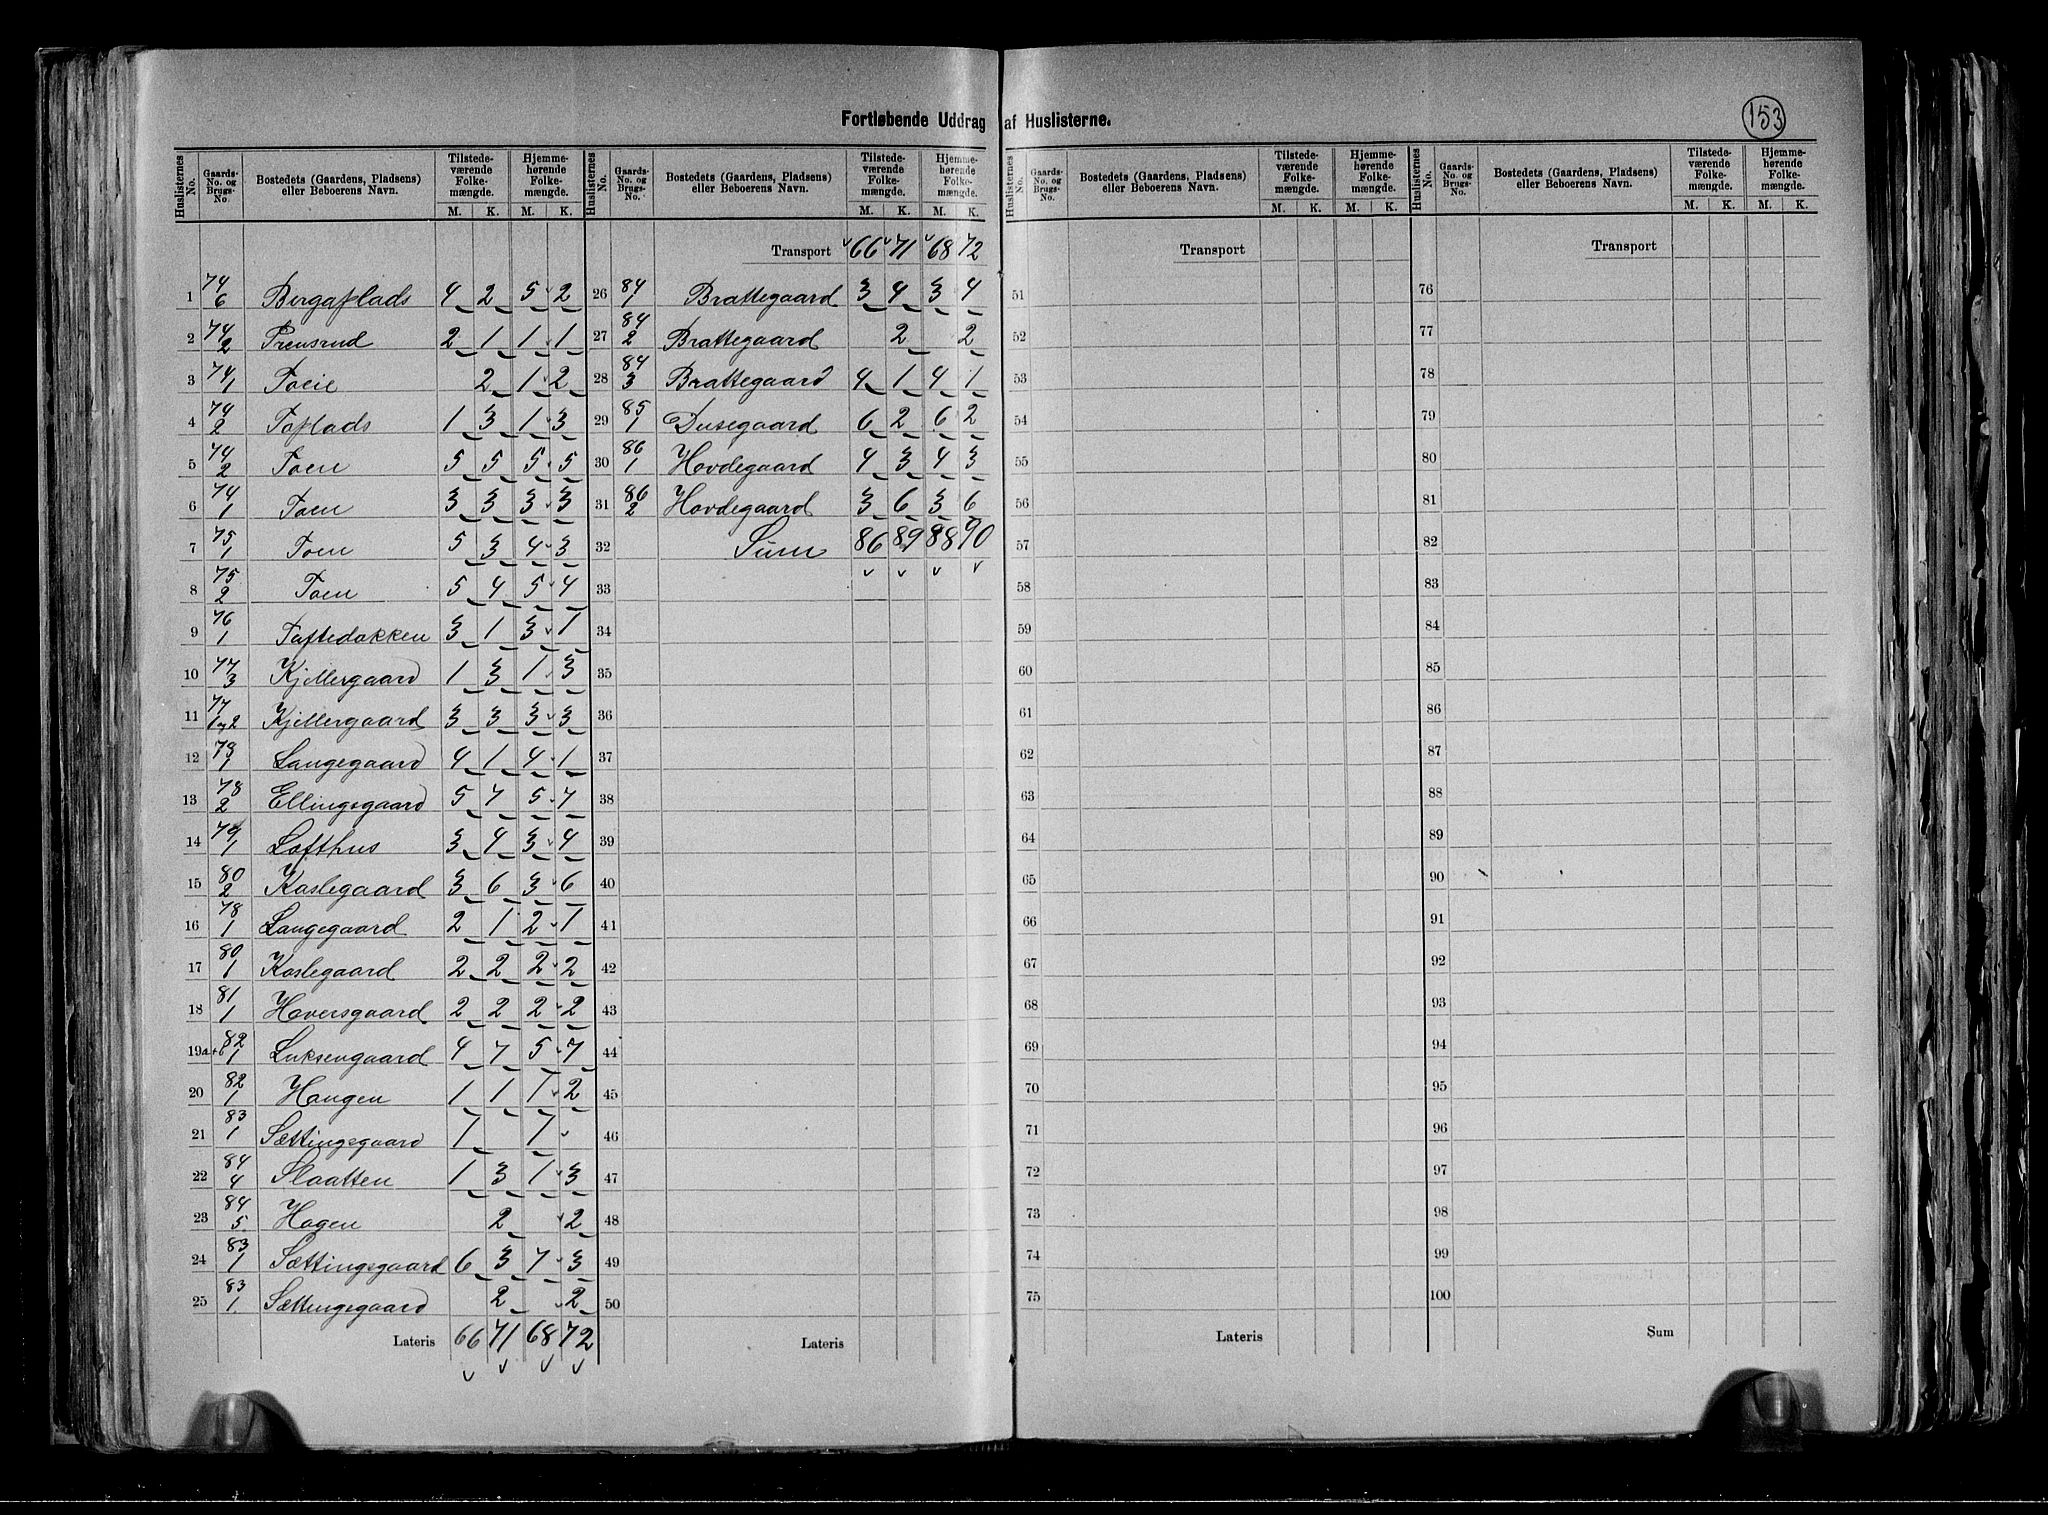 Fortløbende Uddrag af Huslisterne.
153
Huslisternes No. Gaards- No. og Brugs- No. Bostedets (Gaardens, Pladsens) eller Beboerens Navn. Tilstedeværende Folkemængde. M. K. Hjemmehørende Folkemængde. M. K.
1 74/6 Bergaplads 4 2 5 2
2 74/2 Prensrud 2 1 1 1
3 74/1 Toeie 2 1 2
4 74/2 Toplads 1 3 1 3
5 74/2 Toen 5 5 5 5
6 74/1 Toen 3 3 3 3
7 75/1 Toen 5 3 4 3
8 75/2 Toen 5 4 5 4
9 76/1 Toftedokken 3 1 3 1
10 77/3 Kjellergaard 1 3 1 3
11 77/1og2 Kjellergaard 3 3 3 3
12 78/1 Langegaard 4 1 4 1
13 78/2 Ellingsgaard 5 7 5 7
14 79/1 Lofthus 3 4 3 4
15 80/2 Kaslegaard 3 6 3 6
16 78/1 Langegaard 2 1 2 1
17 80/1 Kaslegaard 2 2 2 2
18 81/1 Haversgaard 2 2 2 2
19 a+b 82/1 Luksengaard 4 7 5 7
20 82/1 Haugen 1 1 1 2
21 83/1 Sættingsgaard 1 1
22 84/4 Slaatten 1 3 1 3
23 84/5 Hagen 2 2
24 83/1 Sættingsgaard 6 3 7 3
25 83/1 Sættingsgaard 2 2
Lateris 66 71 68 72
Huslisternes No. Gaards- No. og Brugs- No. Bostedets (Gaardens, Pladsens) eller Beboerens Navn. Tilstedeværende Folkemængde. M. K. Hjemmehørende Folkemængde. M. K.
Transport 66 71 68 72
26 84/1 Brattegaard 3 4 3 4
27 84/2 Brattegaard 2 2
28 84/3 Brattegaard 4 1 4 1
29 85/1 Dusegaard 6 2 6 2
30 86/1 Hovdegaard 4 3 4 3
31 86/2 Hovdegaard 3 6 3 6
32 Sum 86 89 88 90
33
34
35
36
37
38
39
40
41
42
43
44
45
46
47
48
49
50
Lateris
Huslisternes No. Gaards- No. og Brugs- No. Bostedets (Gaardens, Pladsens) eller Beboerens Navn. Tilstedeværende Folkemængde. M. K. Hjemmehørende Folkemængde. M. K.
Transport
51
52
53
54
55
56
57
58
59
60
61
62
63
64
65
66
67
68
69
70
71
72
73
74
75
Lateris
Huslisternes No. Gaards- No. og Brugs- No. Bostedets (Gaardens, Pladsens) eller Beboerens Navn. Tilstedeværende Folkemængde. M. K. Hjemmehørende Folkemængde. M. K.
Transport
76
77
78
79
80
81
82
83
84
85
86
87
88
89
90
91
92
93
94
95
96
97
98
99
100
Sum